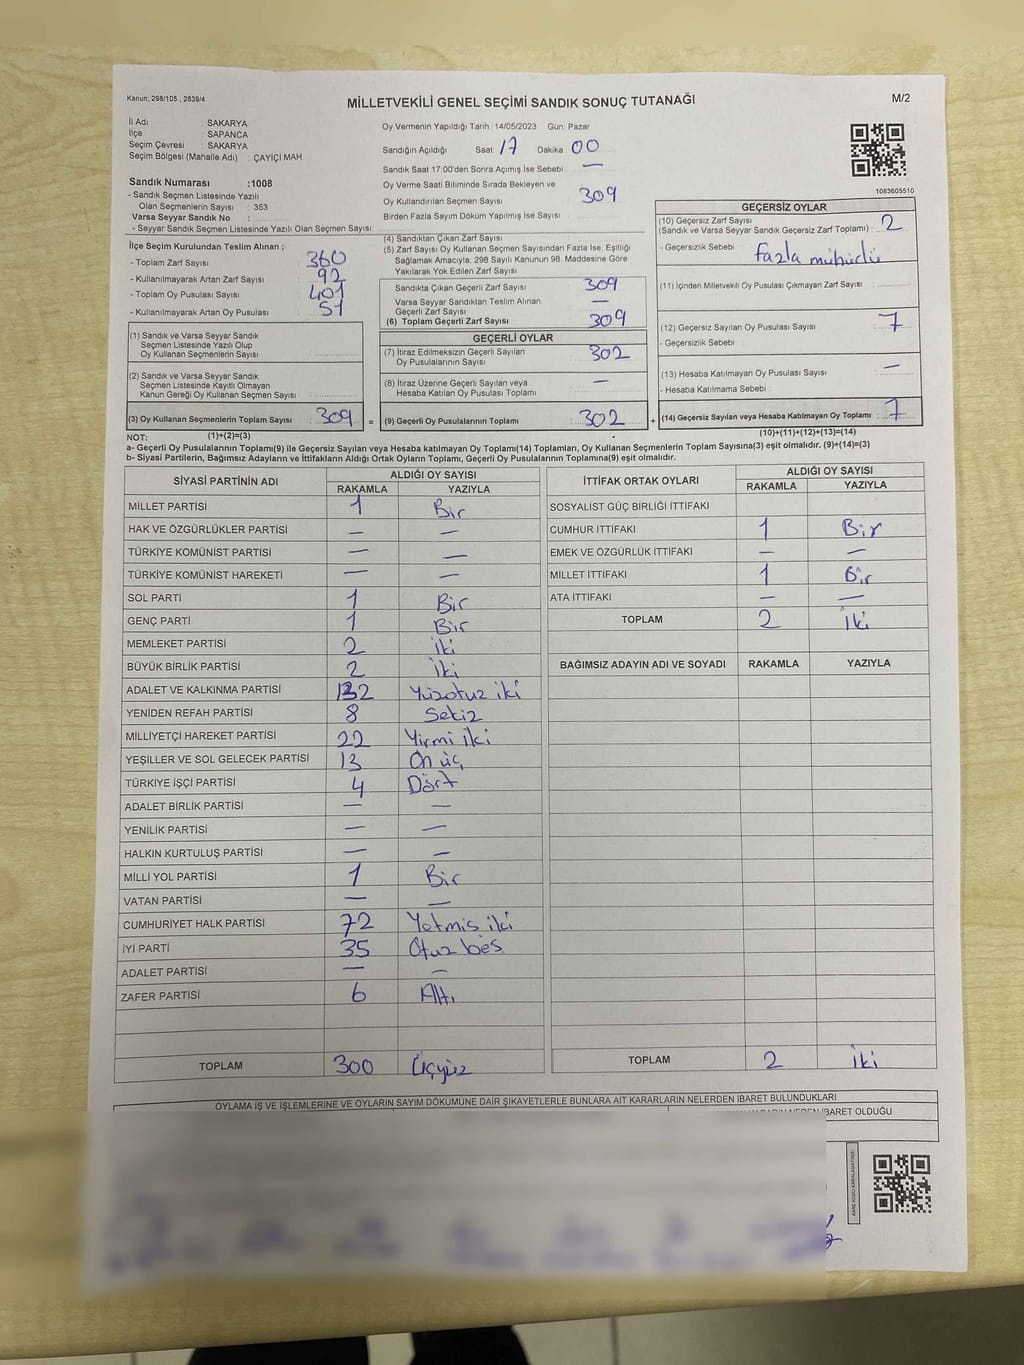 Kanun; 298/105 , 2839/4
MİLLETVEKİLİ GENEL SEÇİMİ SANDIK SONUÇ TUTANAĞI
M/2
İl Adı : SAKARYA
İlçe : SAPANCA
Seçim Çevresi : SAKARYA
Seçim Bölgesi (Mahalle Adı) : ÇAYİÇİ MAH.
Sandık Numarası :1008
- Sandık Seçmen Listesinde Yazılı
Olan Seçmenlerin Sayısı : 353
Varsa Seyyar Sandık No :
- Seyyar Sandık Seçmen Listesinde Yazılı Olan Seçmen Sayısı:
Oy Vermenin Yapıldığı Tarih :14/05/2023 Gün: Pazar
Sandığın Açıldığı Saat 17 Dakika 00
Sandık Saat 17:00'den Sonra Açımış İse Sebebi —
Oy Verme Saati Bitiminde Sırada Bekleyen ve
Oy Kullandırılan Seçmen Sayısı 309
Birden Fazla Sayım Döküm Yapılmış İse Sayısı
1083605510
İlçe Seçim Kurulundan Teslim Alınan ;
- Toplam Zarf Sayısı : 360
- Kullanılmayarak Artan Zarf Sayısı : 92
- Toplam Oy Pusulası Sayısı : 401
- Kullanılmayarak Artan Oy Pusulası : 51
(1) Sandık ve Varsa Seyyar Sandık
Seçmen Listesinde Yazılı Olup
Oy Kullanan Seçmenlerin Sayısı :
(2) Sandık ve Varsa Seyyar Sandık
Seçmen Listesinde Kayıtlı Olmayan
Kanun Gereği Oy Kullanan Seçmen Sayısı :
(3) Oy Kullanan Seçmenlerin Toplam Sayısı : 309 =
(4) Sandıktan Çıkan Zarf Sayısı :
(5) Zarf Sayısı Oy Kullanan Seçmen Sayısından Fazla İse, Eşitliği
Sağlamak Amacıyla, 298 Sayılı Kanunun 98. Maddesine Göre
Yakılarak Yok Edilen Zarf Sayısı :
Sandıkta Çıkan Geçerli Zarf Sayısı : 309
Varsa Seyyar Sandıktan Teslim Alınan
Geçerli Zarf Sayısı : —
(6) Toplam Geçerli Zarf Sayısı : 309
GEÇERLİ OYLAR
(7) İtiraz Edilmeksizin Geçerli Sayılan
Oy Pusulalarının Sayısı : 302
(8) İtiraz Üzerine Geçerli Sayılan veya
Hesaba Katılan Oy Pusulası Toplamı : —
(9) Geçerli Oy Pusulalarının Toplamı : 302 +
GEÇERSİZ OYLAR
(10) Geçersiz Zarf Sayısı
(Sandık ve Varsa Seyyar Sandık Geçersiz Zarf Toplamı) : 2
- Geçersizlik Sebebi : fazla mühürlü
(11) İçinden Milletvekili Oy Pusulası Çıkmayan Zarf Sayısı :
(12) Geçersiz Sayılan Oy Pusulası Sayısı : 7
- Geçersizlik Sebebi :
(13) Hesaba Katılmayan Oy Pusulası Sayısı : —
- Hesaba Katılmama Sebebi :
(14) Geçersiz Sayılan veya Hesaba Katılmayan Oy Toplamı : 7
(10)+(11)+(12)+(13)=(14)
NOT: (1)+(2)=(3)
a- Geçerli Oy Pusulalarının Toplamı(9) ile Geçersiz Sayılan veya Hesaba katılmayan Oy Toplamı(14) Toplamları, Oy Kullanan Seçmenlerin Toplam Sayısına(3) eşit olmalıdır. (9)+(14)=(3)
b- Siyasi Partilerin, Bağımsız Adayların ve İttifakların Aldığı Ortak Oyların Toplamı, Geçerli Oy Pusulalarının Toplamına(9) eşit olmalıdır.
SİYASİ PARTİNİN ADI ALDIĞI OY SAYISI
RAKAMLA YAZIYLA
MİLLET PARTİSİ 1 Bir
HAK VE ÖZGÜRLÜKLER PARTİSİ — —
TÜRKİYE KOMÜNİST PARTİSİ — —
TÜRKİYE KOMÜNİST HAREKETİ — —
SOL PARTİ 1 Bir
GENÇ PARTİ 1 Bir
MEMLEKET PARTİSİ 2 iki
BÜYÜK BİRLİK PARTİSİ 2 iki
ADALET VE KALKINMA PARTİSİ 132 Yüzotuz iki
YENİDEN REFAH PARTİSİ 8 Sekiz
MİLLİYETÇİ HAREKET PARTİSİ 22 Yirmi iki
YEŞİLLER VE SOL GELECEK PARTİSİ 13 On üç
TÜRKİYE İŞÇİ PARTİSİ 4 Dört
ADALET BİRLİK PARTİSİ — —
YENİLİK PARTİSİ — —
HALKIN KURTULUŞ PARTİSİ — —
MİLLİ YOL PARTİSİ 1 Bir
VATAN PARTİSİ — —
CUMHURİYET HALK PARTİSİ 72 Yetmis iki
İYİ PARTİ 35 Otuz bes
ADALET PARTİSİ — —
ZAFER PARTİSİ 6 Altı
TOPLAM 300 Üçyüz
İTTİFAK ORTAK OYLARI ALDIĞI OY SAYISI
RAKAMLA YAZIYLA
SOSYALİST GÜÇ BİRLİĞİ İTTİFAKI
CUMHUR İTTİFAKI 1 Bir
EMEK VE ÖZGÜRLÜK İTTİFAKI — —
MİLLET İTTİFAKI 1 Bir
ATA İTTİFAKI — —
TOPLAM 2 İki
BAĞIMSIZ ADAYIN ADI VE SOYADI RAKAMLA YAZIYLA
TOPLAM 2 İki
OYLAMA İŞ VE İŞLEMLERİNE VE OYLARIN SAYIM DÖKÜMÜNE DAİR ŞİKAYETLERLE BUNLARA AİT KARARLARIN NELERDEN İBARET BULUNDUKLARI
İBARET OLDUĞU
KARE KODU KARALAMAYINIZ!